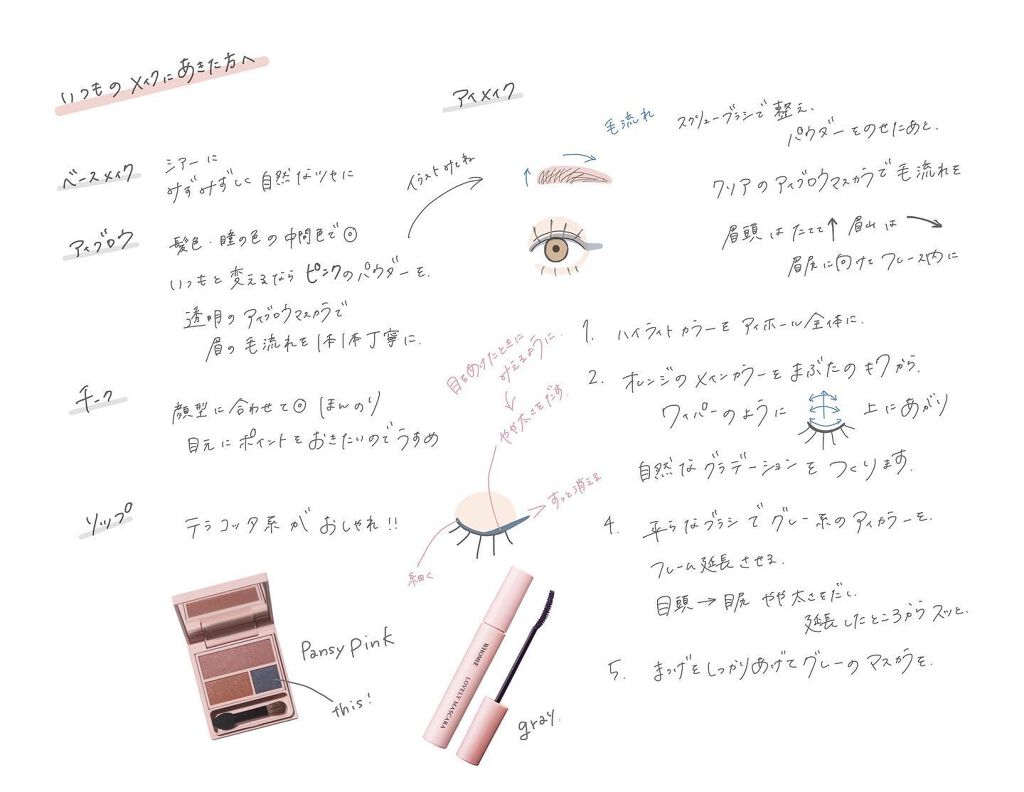 いつものメイクにあきた方へ
ベースメイク
シアーに
みずみずしく自然なツヤに
アイブロウ
髪色・瞳の色の中間色で◎
いつもと変えるならピンクのパウダーを。
透明のアイブロウマスカラで
眉の毛流れを1本1本丁寧に。
チーク
顔型に合わせて◎ ほんのり
目元にポイントをおきたいのでうすめ
リップ
テラコッタ系がおしゃれ!!
Pansy pink
this!
アイメイク
イラストみてね
毛流れ
スクリューブラシで整え、
パウダーをのせたあと、
クリアのアイブロウマスカラで毛流れを
眉頭はたてて↑ 眉山は→
眉尻に向けてフレーム内に
1. ハイライトカラーをアイホール全体に。
2. オレンジのメインカラーをまぶたのキワから、
ワイパーのように 上にあがり
自然なグラデーションをつくります。
4. 平らなブラシでグレー系のアイカラーを。
フレーム延長させる。
目頭→目尻 やや太さをだし、
延長したところからスッと。
5. まつげをしっかりあげてグレーのマスカラを。
目をあけたときに
みえるように。
やや太さをだす。
すっと消える
細く
WHOMEE LOVELY MASCARA
gray.